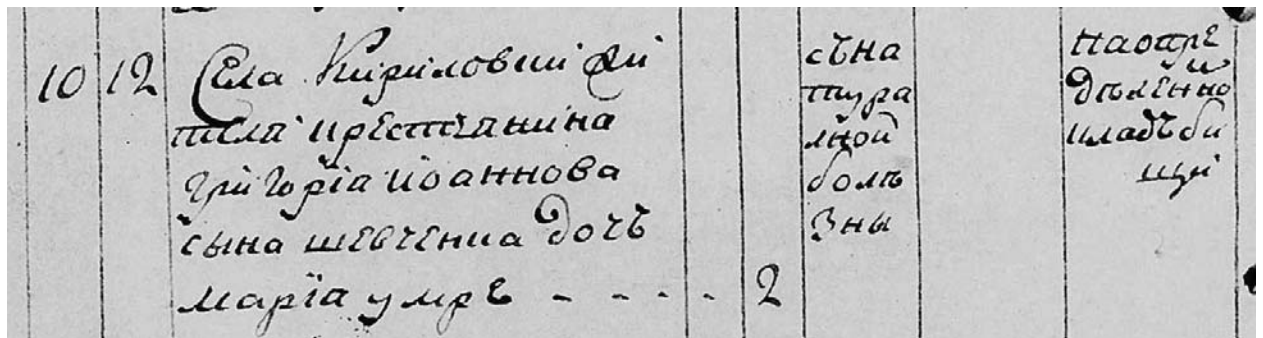 10 12 Села Кириловки жи
теля крестянина
григорїа иоаннова
сына шевченка дочъ
марїа умре - - - - 2
сѣна
тура
лной
болѣ
зны
на опре
дѣленно
кладъби
щи